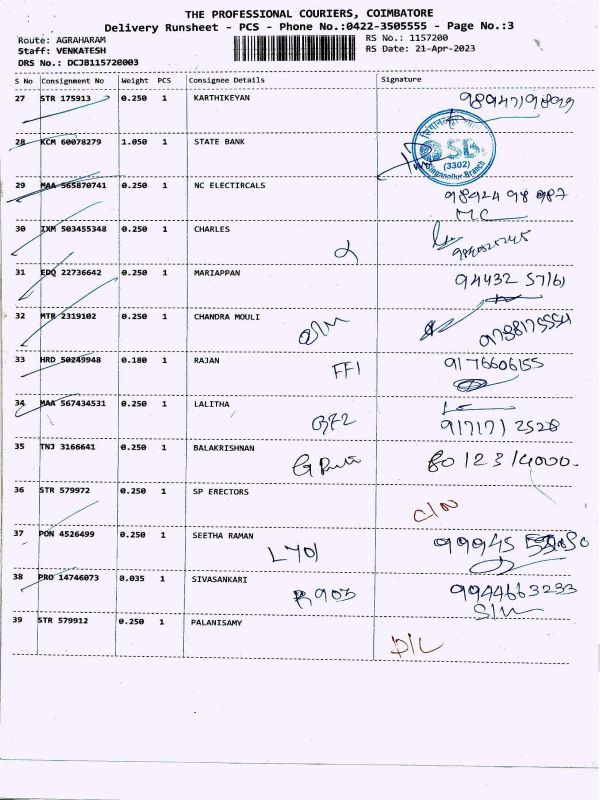 THE PROFESSIONAL COURIERS, COIMBATORE
Delivery Runsheet - PCS - Phone No.:0422-3505555 - Page No.:3
Route: AGRAHARAM RS No.: 1157200
Staff: VENKATESH RS Date: 21-Apr-2023
DRS No.: DCJB115720003
S No Consignment No Weight PCS Consignee Details Signature
27 STR 175913 0.250 1 KARTHIKEYAN
28 KCM 60078279 1.050 1 STATE BANK
SBI
(3302)
Singanallur-Branch
29 MAA 565870741 0.250 1 NC ELECTIRCALS 98424 98 987
MC
30 IXM 503455348 0.250 1 CHARLES
31 EDQ 22736642 0.250 1 MARIAPPAN 94432 57161
32 MTR 2319102 0.250 1 CHANDRA MOULI 9788175554
33 HRD 50249948 0.180 1 RAJAN FF1 9176606155
34 MAA 567434531 0.250 1 LALITHA GF2 917171 2528
35 TNJ 3166641 0.250 1 BALAKRISHNAN 80 123 14000
36 STR 579972 0.250 1 SP ERECTORS C/N
37 PON 4526499 0.250 1 SEETHA RAMAN L701 99945
38 PRO 14746073 0.035 1 SIVASANKARI R 903 9944663233
39 STR 579912 0.250 1 PALANISAMY D/L